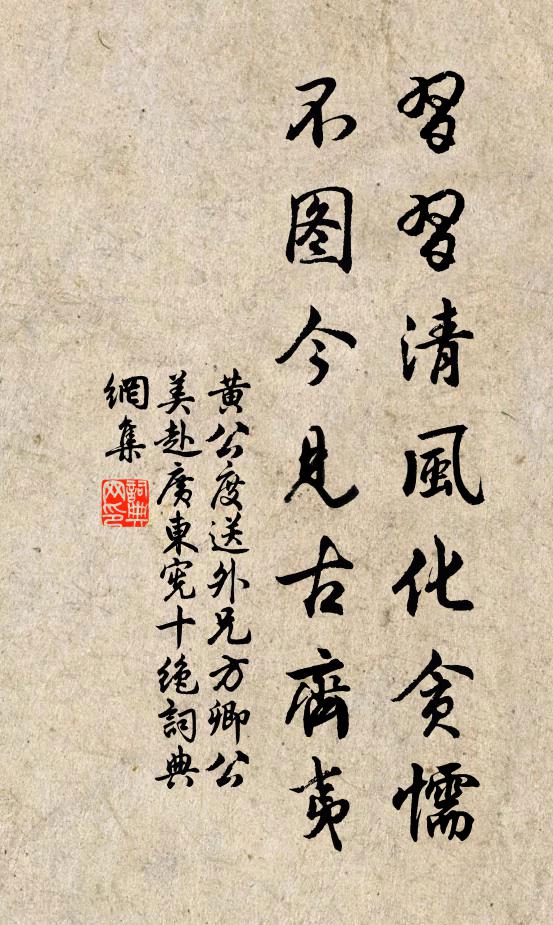 習習清風化貪懦
不圖今見古齊夷
黄公度送外兄方卿公
美赴廣東宪十绝詞典
網集
詞典
网印